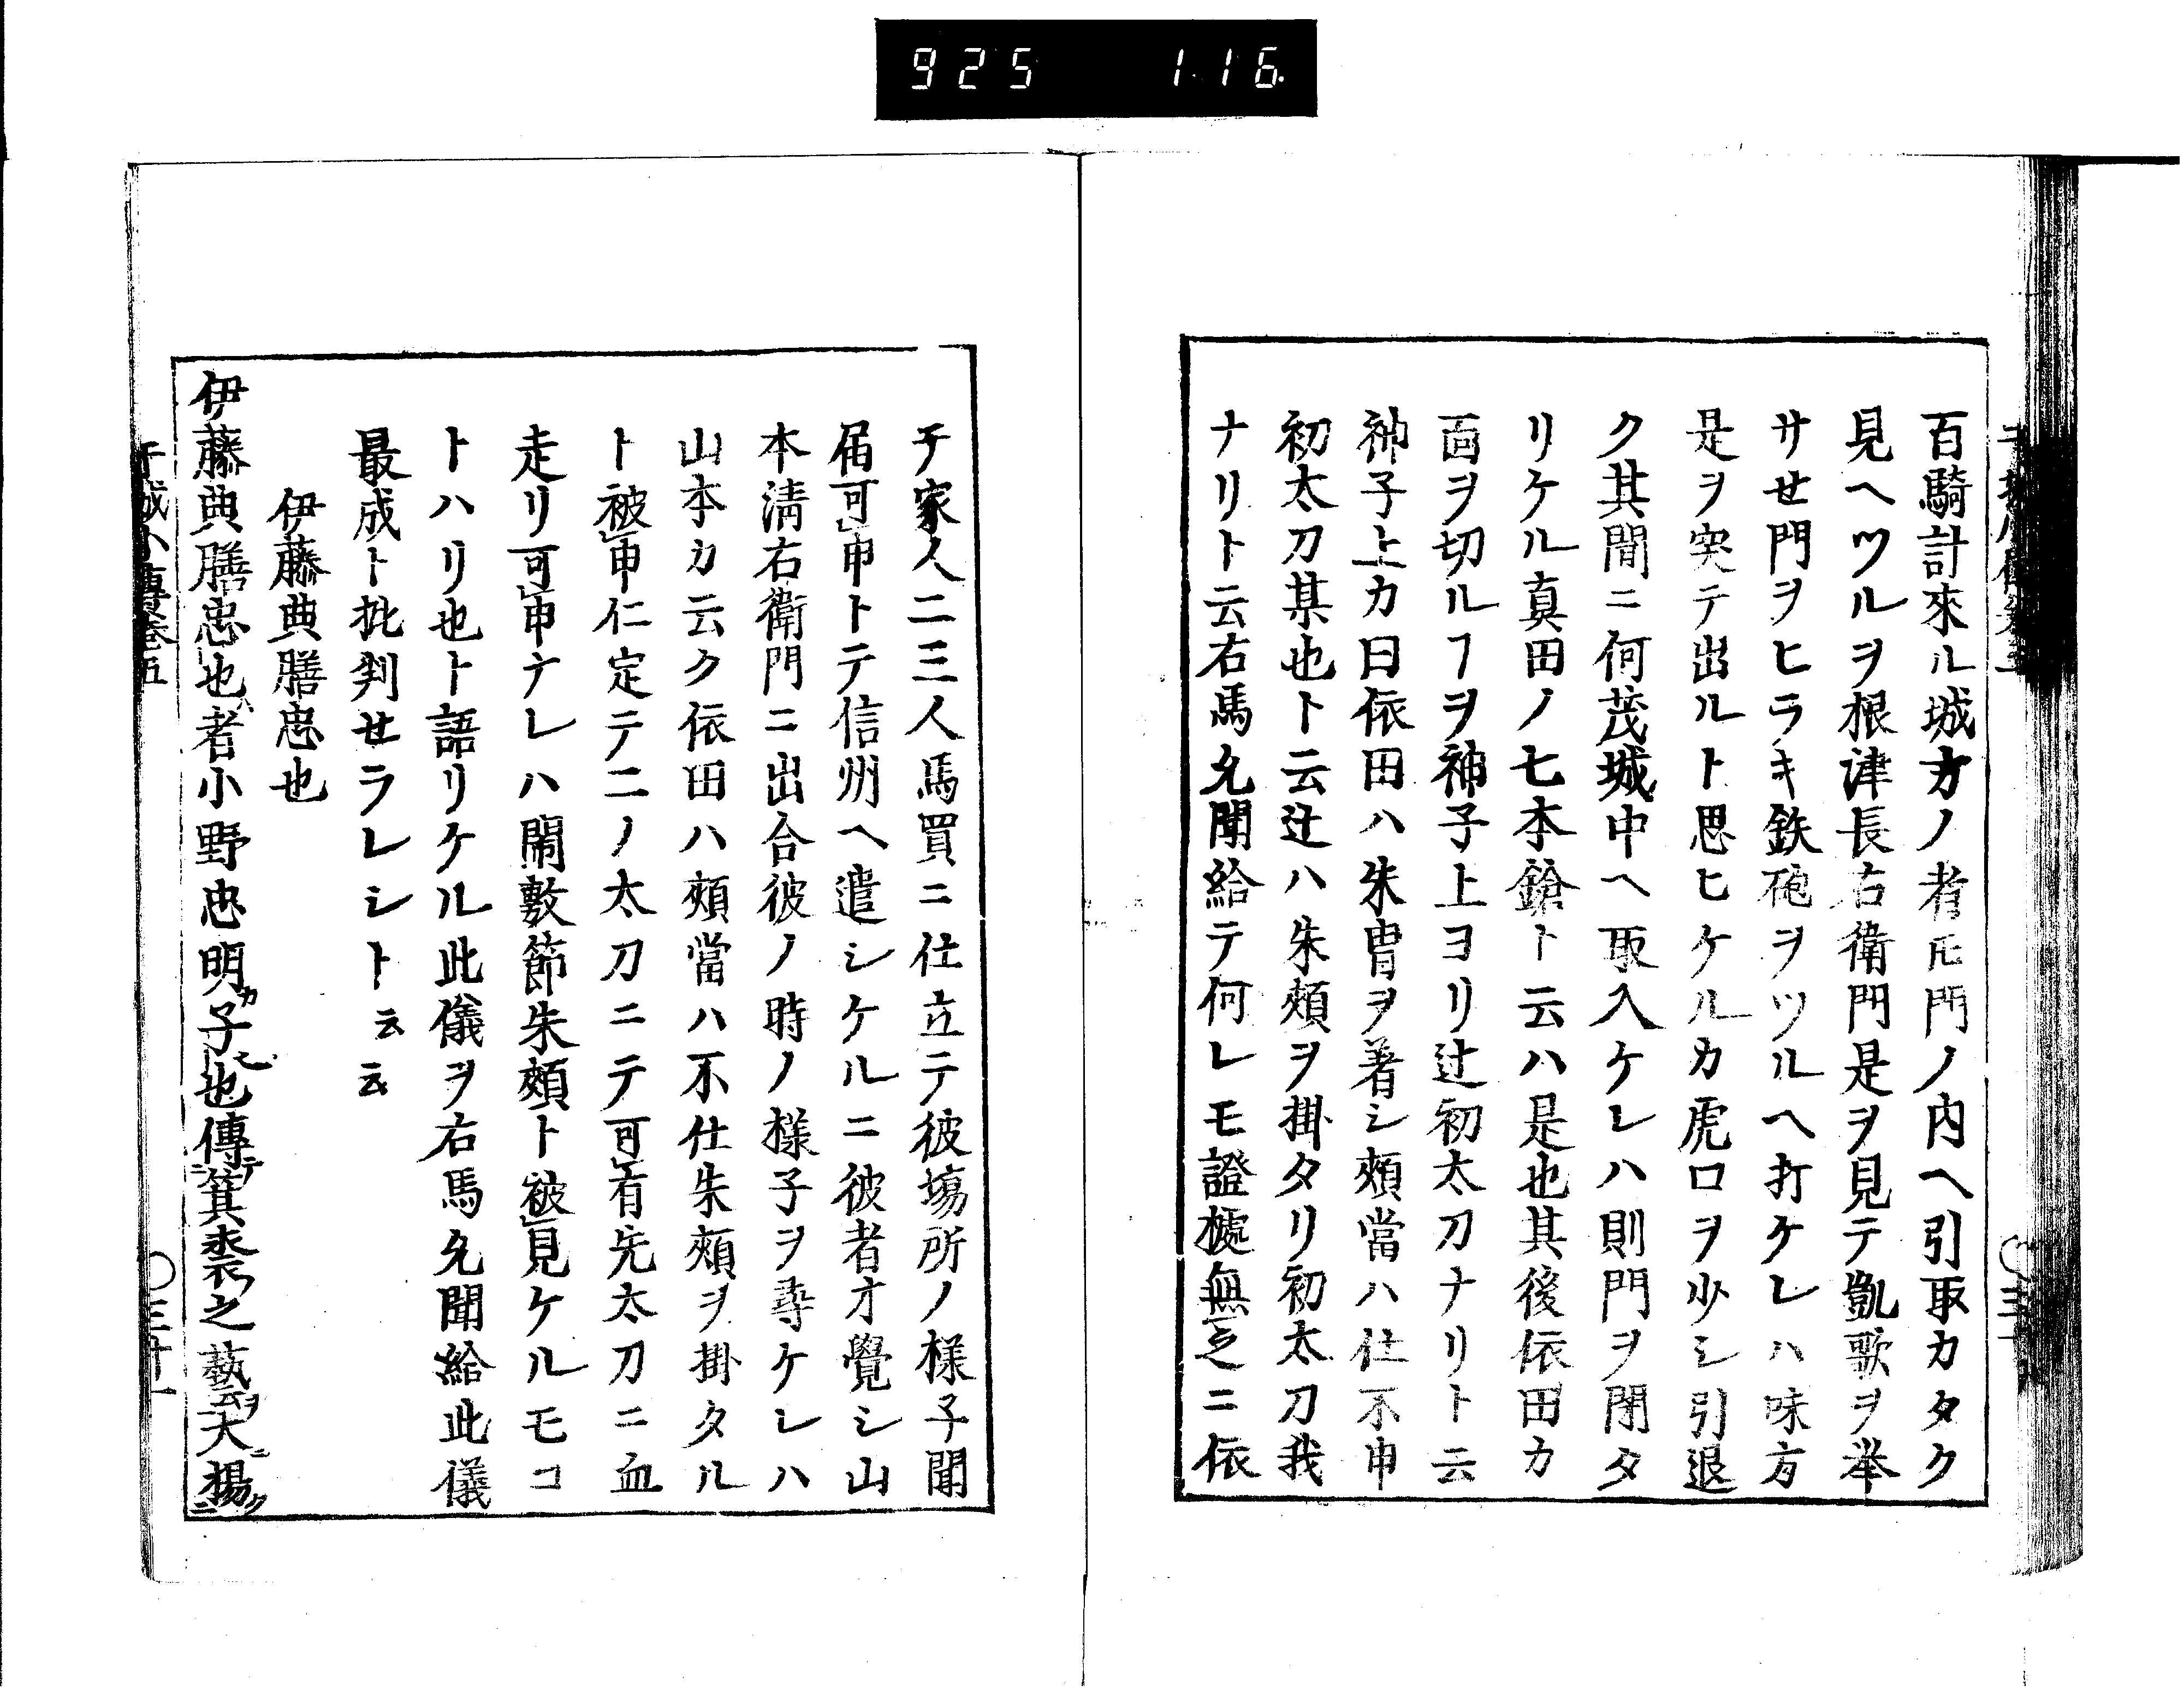 925 1.16.
百騎計來ル城方ノ者𪜈門ノ内ヘ引取カタク
見ヘツルヲ根津長右衛門是ヲ見テ凱歌ヲ挙
サせ門ヲヒラキ鉄砲ヲツルヘ打ケレハ味方
是ヲ突テ出ルト思ヒケルカ虎口ヲ少シ引退
ク其間ニ何茂城中ヘ取入ケレハ則門ヲ閉タ
リケル真田ノ七本鎗ト云ハ是也其後依田カ
面ヲ切ルヿヲ神子上ヨリ辻初太刀ナリト云
神子上カ曰依田ハ朱冑ヲ着シ頬當ハ仕不申
初太刀某也ト云辻ハ朱頬ヲ掛タリ初太刀我
ナリト云右馬允聞給テ何レモ證㯫無之ニ依
テ家人二三人馬買ニ仕立テ彼塲所ノ様子聞
届可申トテ信州ヘ遣シケルニ彼者才覺シ山
本淸右衛門ニ出合彼ノ時ノ様子ヲ尋ケレハ
山本カ云ク依田ハ頬當ハ不仕朱頬ヲ掛タル
ト被申仁定テ二ノ太刀ニテ可有先太刀ニ血
走リ可申ナレハ閙敷節朱頬ト被見ケルモコ
トハリ也ト語リケル此儀ヲ右馬允聞給此儀
最成ト批判せラレシト云云
伊藤典膳忠也
伊藤典膳忠也ハ者小野忠明カ子也傳テ箕裘之藝ヲ大ニ揚ク
干城小傳巻五
〇三十一